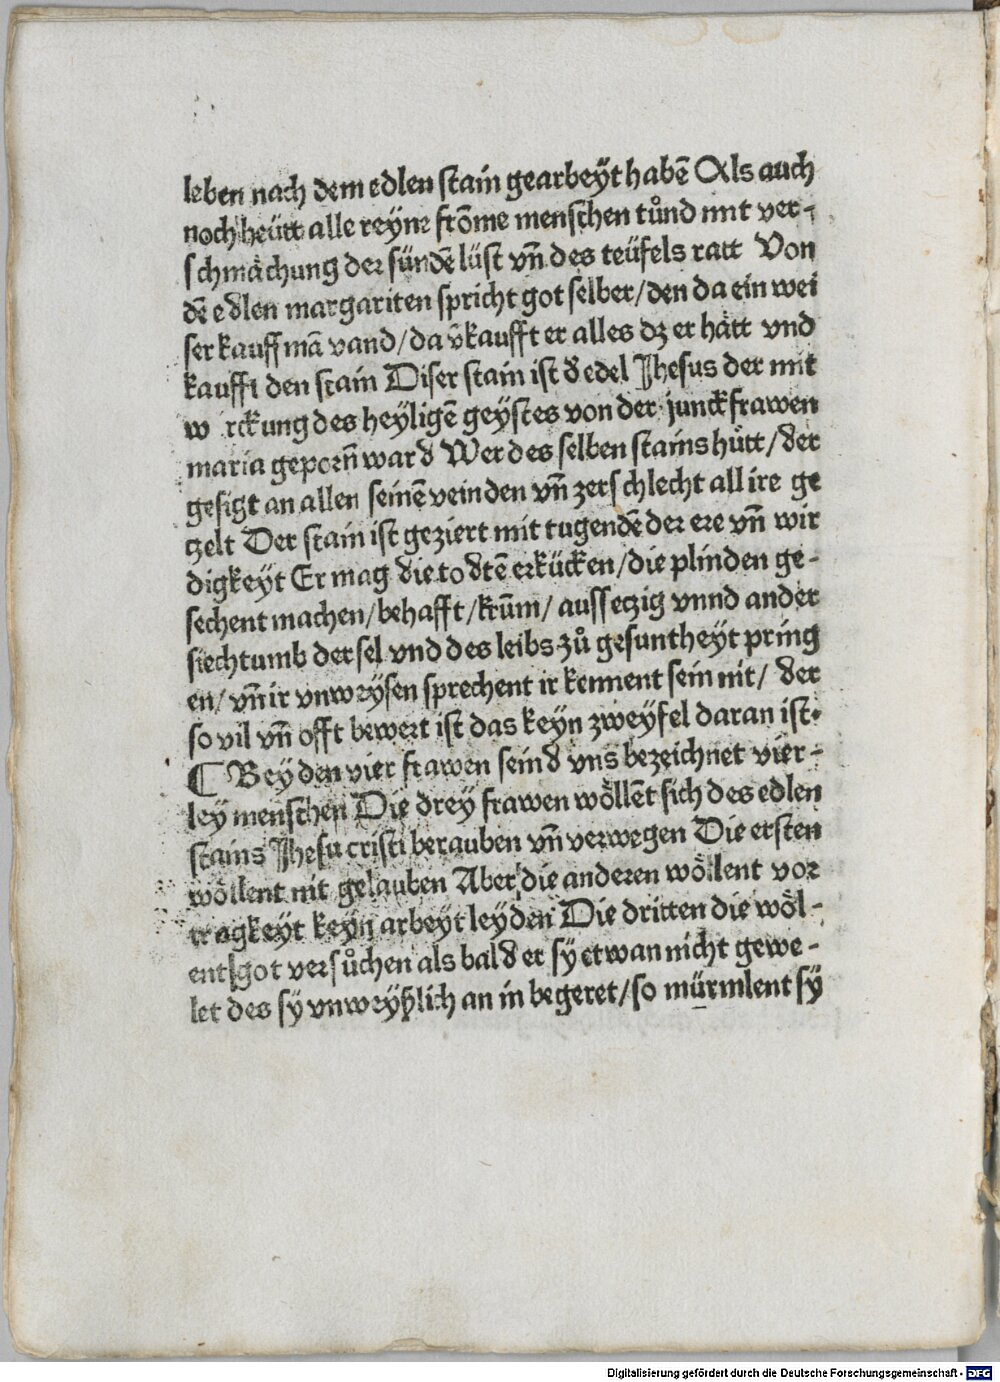 leben nach dem edlen stain gearbeyt habē Als auch
noch heütt alle reyne frōme menschen tůnd mit ver-
schmächung der sündē lüst vn̄ des teüfels ratt Von
dē edlen margariten spricht got selber/den da ein wei
ser kauffmā vand/da v̄kaufft er alles dz er hätt vnd
kaufft den stain Diser stain ist d̕ edel Jhesus der mit
w rckung des heyligē geystes von der junckfrawen
maria geporn̄ ward Wer des selben stains hütt/der
gesigt an allen seinē veinden vn̄ zerschlecht all ire ge
tzelt Der stain ist geziert mit tugendē der ere vn̄ wir
digkeyt Er mag die todtē erkücken/die plinden ge-
sechent machen/behafft/krūm/aussetzig vnnd ander
siechtumb der sel vnd des leibs zů gesuntheyt pring
en/vn̄ ir vnweysen sprechent ir kennent sein nit/der
so vil vn̄ offt bewert ist das keyn zweyfel daran ist.
¶ Bey den vier frawen seind vns bezeichnet vier-
ley menschen Die drey frawen wöllēt sich des edlen
stains Jhesu cristi berauben vn̄ verwegen Die ersten
wöllent nit gelauben Aber die anderen wöllent vor
tragkeyt keyn arbeyt leyden Die dritten die wöl-
ent got versůchen als bald er sy etwan nicht gewe-
let des sÿ vnweyßlich an in begeret/so mürmlent sÿ
Digitalisierung gefördert durch die Deutsche Forschungsgemeinschaft - DFG